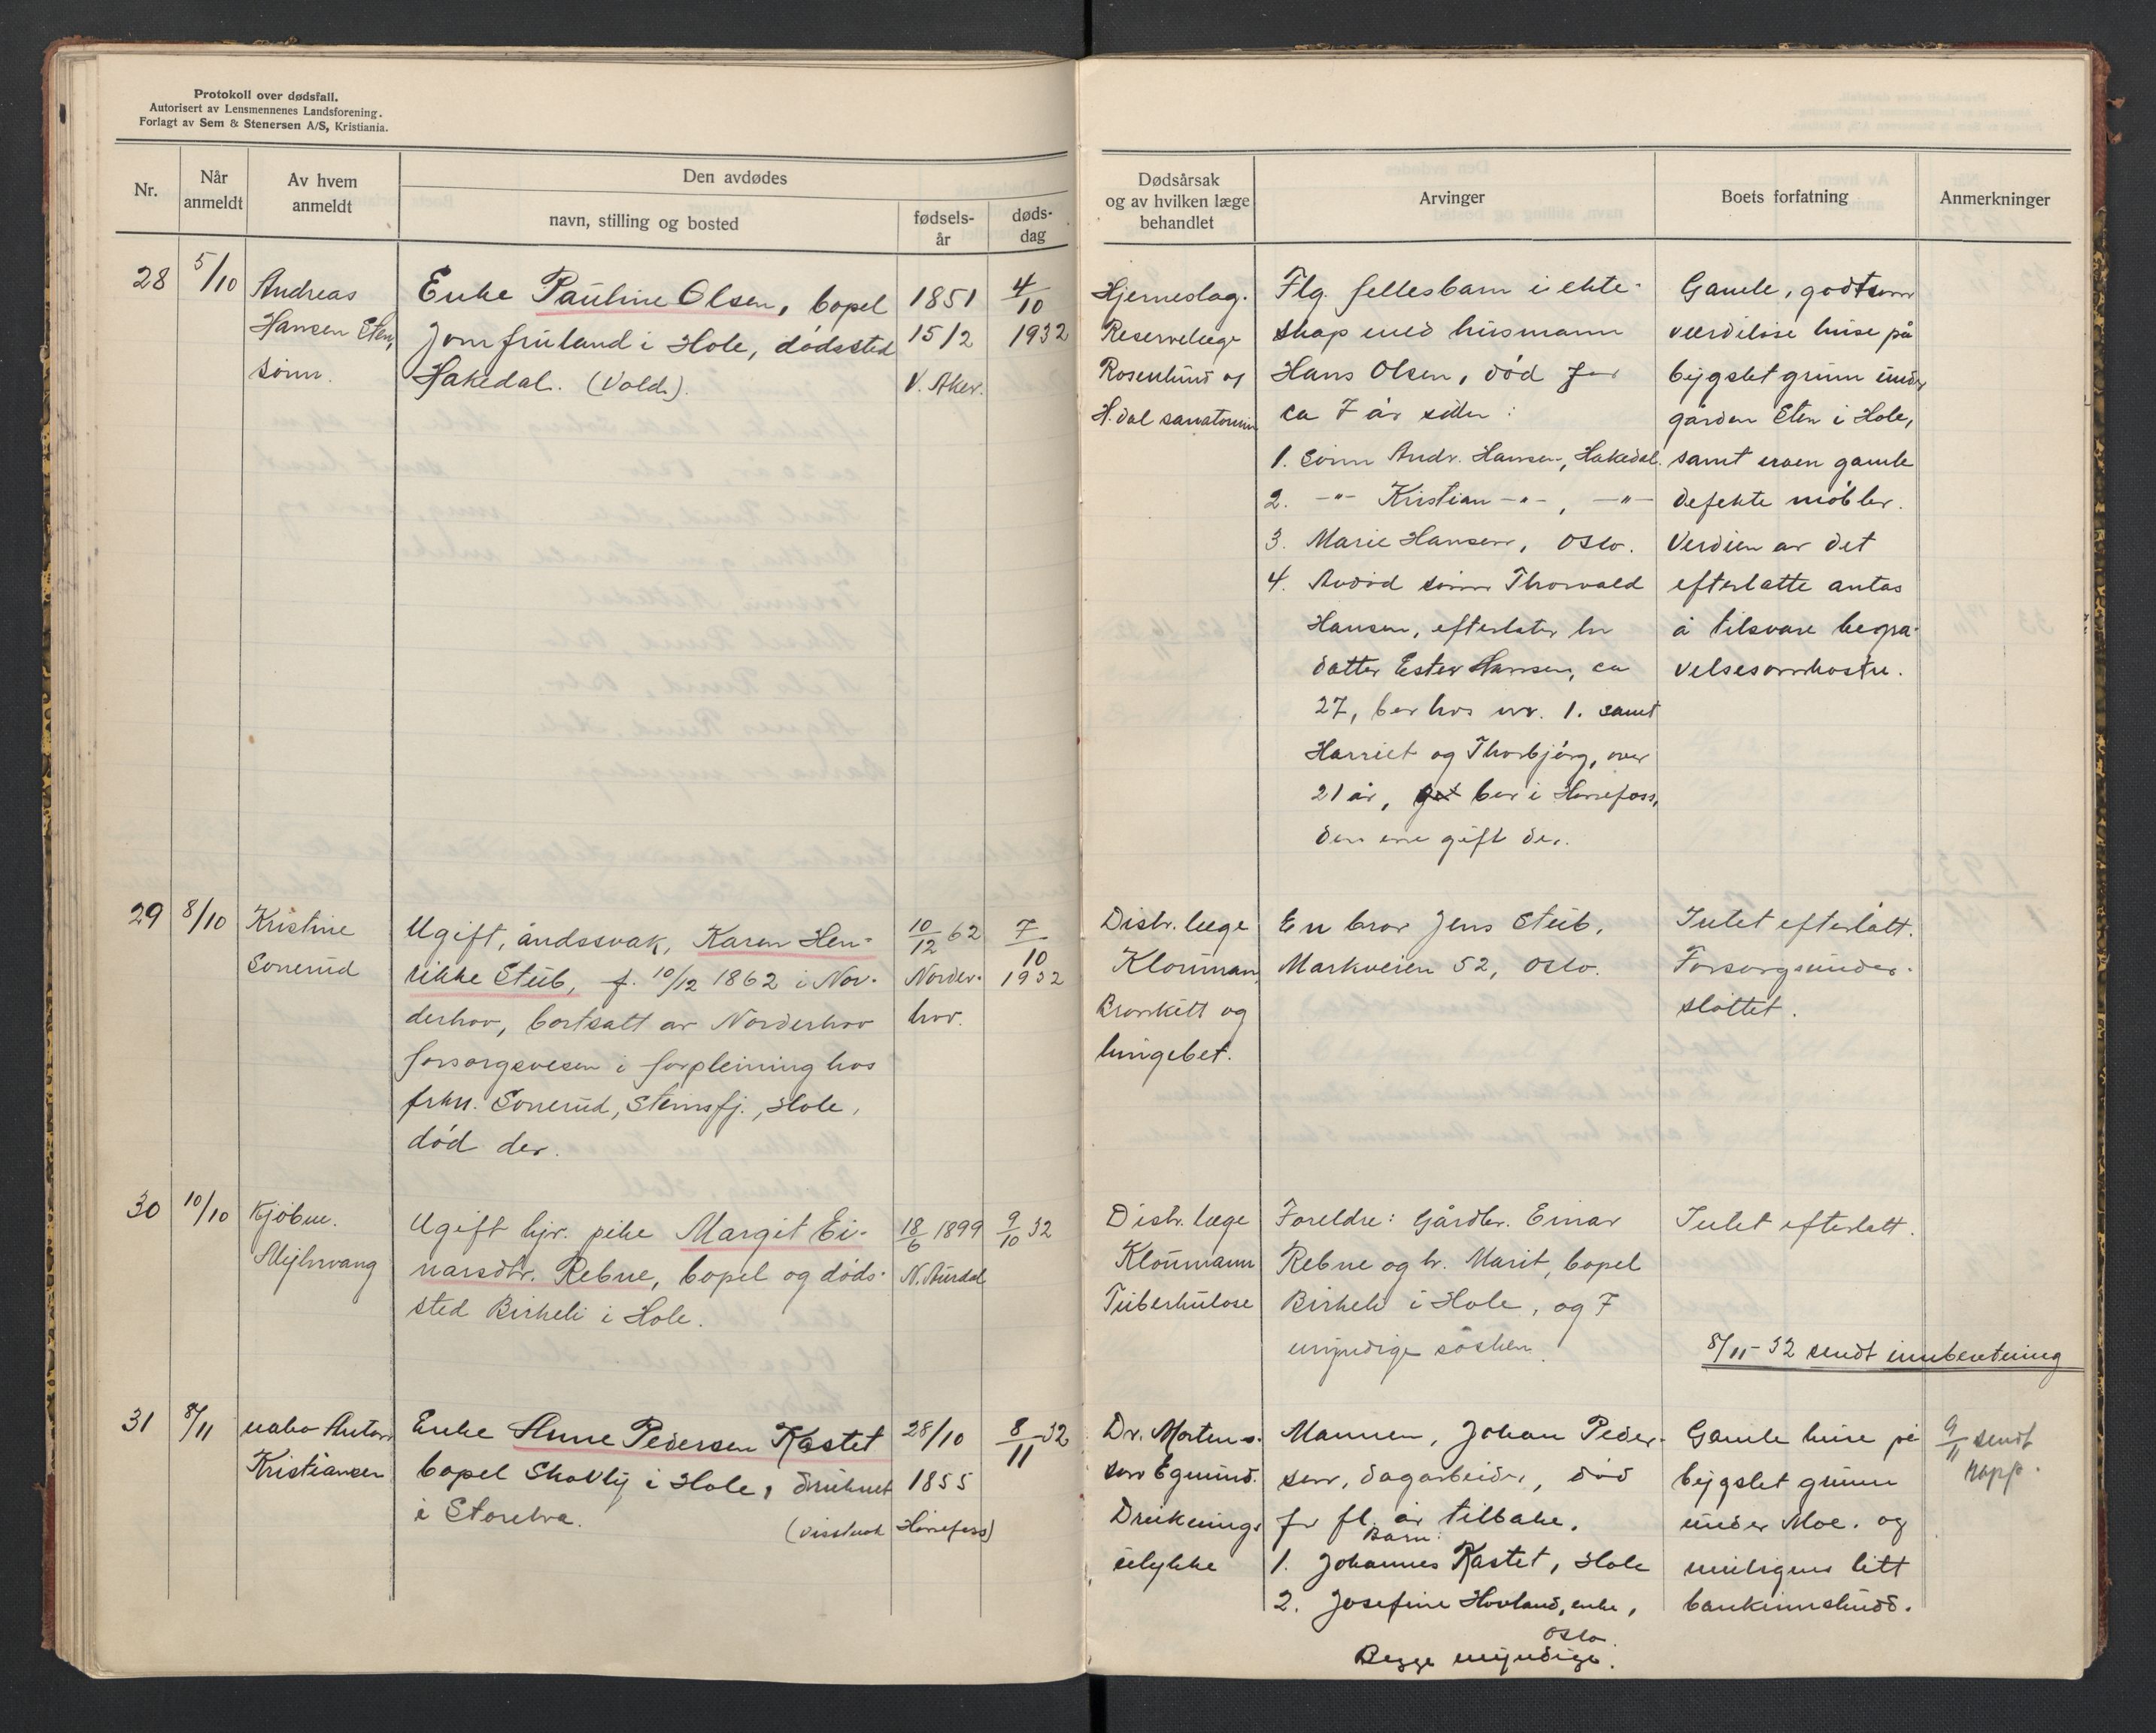 Protokoll over dødsfall.
Autorisert av Lensmennenes Landsforening.
Forlagt av Sem & Stenersen A/S, Kristiania.
Nr.
Når anmeldt
Av hvem anmeldt
Den avdødes
navn, stilling og bosted
fødsels-år
døds-dag
Dødsårsak og av hvilken læge behandlet
Arvinger
Boets forfatning
Anmerkninger
28
5/10
Andreas
Hansen Eten,
sønn.
Enke Pauline Olsen, bopel
Jomfruland i Hole, dødssted
Hakedal. (Vold.).
1851
15/2
V. Aker.
4/10
1932
Hjerneslag.
Reservelæge
Rosenlund og
H.dal sanatorium
Flg. fellesbarn i ekte-
skap med husmann
Hans Olsen, død for
ca 7 år siden :
1. Sønn Andr. Hansen, Hakedal.
2. -"- Kristian -"-, -"-
3. Marie Hansen, Oslo.
4. Avdød sønn Thorvald
Hansen, efterlater en
datter Ester Hansen, ca
27, bor hos nr. 1. samt
Harriet og Thorbjørg, over
21 år, bor i Hønefoss,
den ene gift der.
Gamle, godt som
verdiløse huse på
bygslet grunn under
gården Eten i Hole,
samt noen gamle
defekte møbler.
Verdien av det
efterlatte antas
å tilsvare begra-
velsesomkostn.
29
8/10
Kristine
Sonerud
Ugift, åndssvak, Karen Hen-
rikke Steib, f. 10/12 1862 i Nor-
derhov, bortsatt av Norderhov
forsorgsvesen i forpleining hos
frkn. Sonerud, Steinsfj., Hole,
død der.
10/12 62
Norder-
hov.
7/10
1932
Distr. læge
Kloumann,
Bronkitt og
lungebet.
En bror Jens Steib,
Markveien 52, Oslo.
Intet efterlatt.
Forsorgsunder-
støttet.
30
10/10
Kjøbm.
Myhrvang
Ugift hjv. pike Margit Ei-
narsdtr. Rebne, bopel og døds-
sted Birkeli i Hole.
18/6 1899
N. Aurdal
9/10 32
Distr. læge
Kloumann
Tuberkulose
Foreldre: Gårdbr. Einar
Rebne og h. Marit, bopel
Birkeli i Hole, og 7
umyndige søsken.
Intet efterlatt.
8/11-32 sendt innberetning
31
8/11
nabo Anton
Kristiansen
Enke Anne Pedersen Kastet
bopel Skovly i Hole, druknet
i Storelva.
(visstnok Hønefoss)
28/10
1855
8/11 32
Dr. Mortens-
sen Egnund.
Druknings
ulykke
Mannen, Johan Peder-
sen, dagarbeider, død
for fl. år tilbake.
Barn:
1. Johannes Kastet, Hole
2. Josefine Hovland, enke,
Oslo.
Begge myndige.
Gamle huse på
bygslet grunn
under Moe. og
muligens litt
bankinnskudd.
9/11 sendt
rapp.